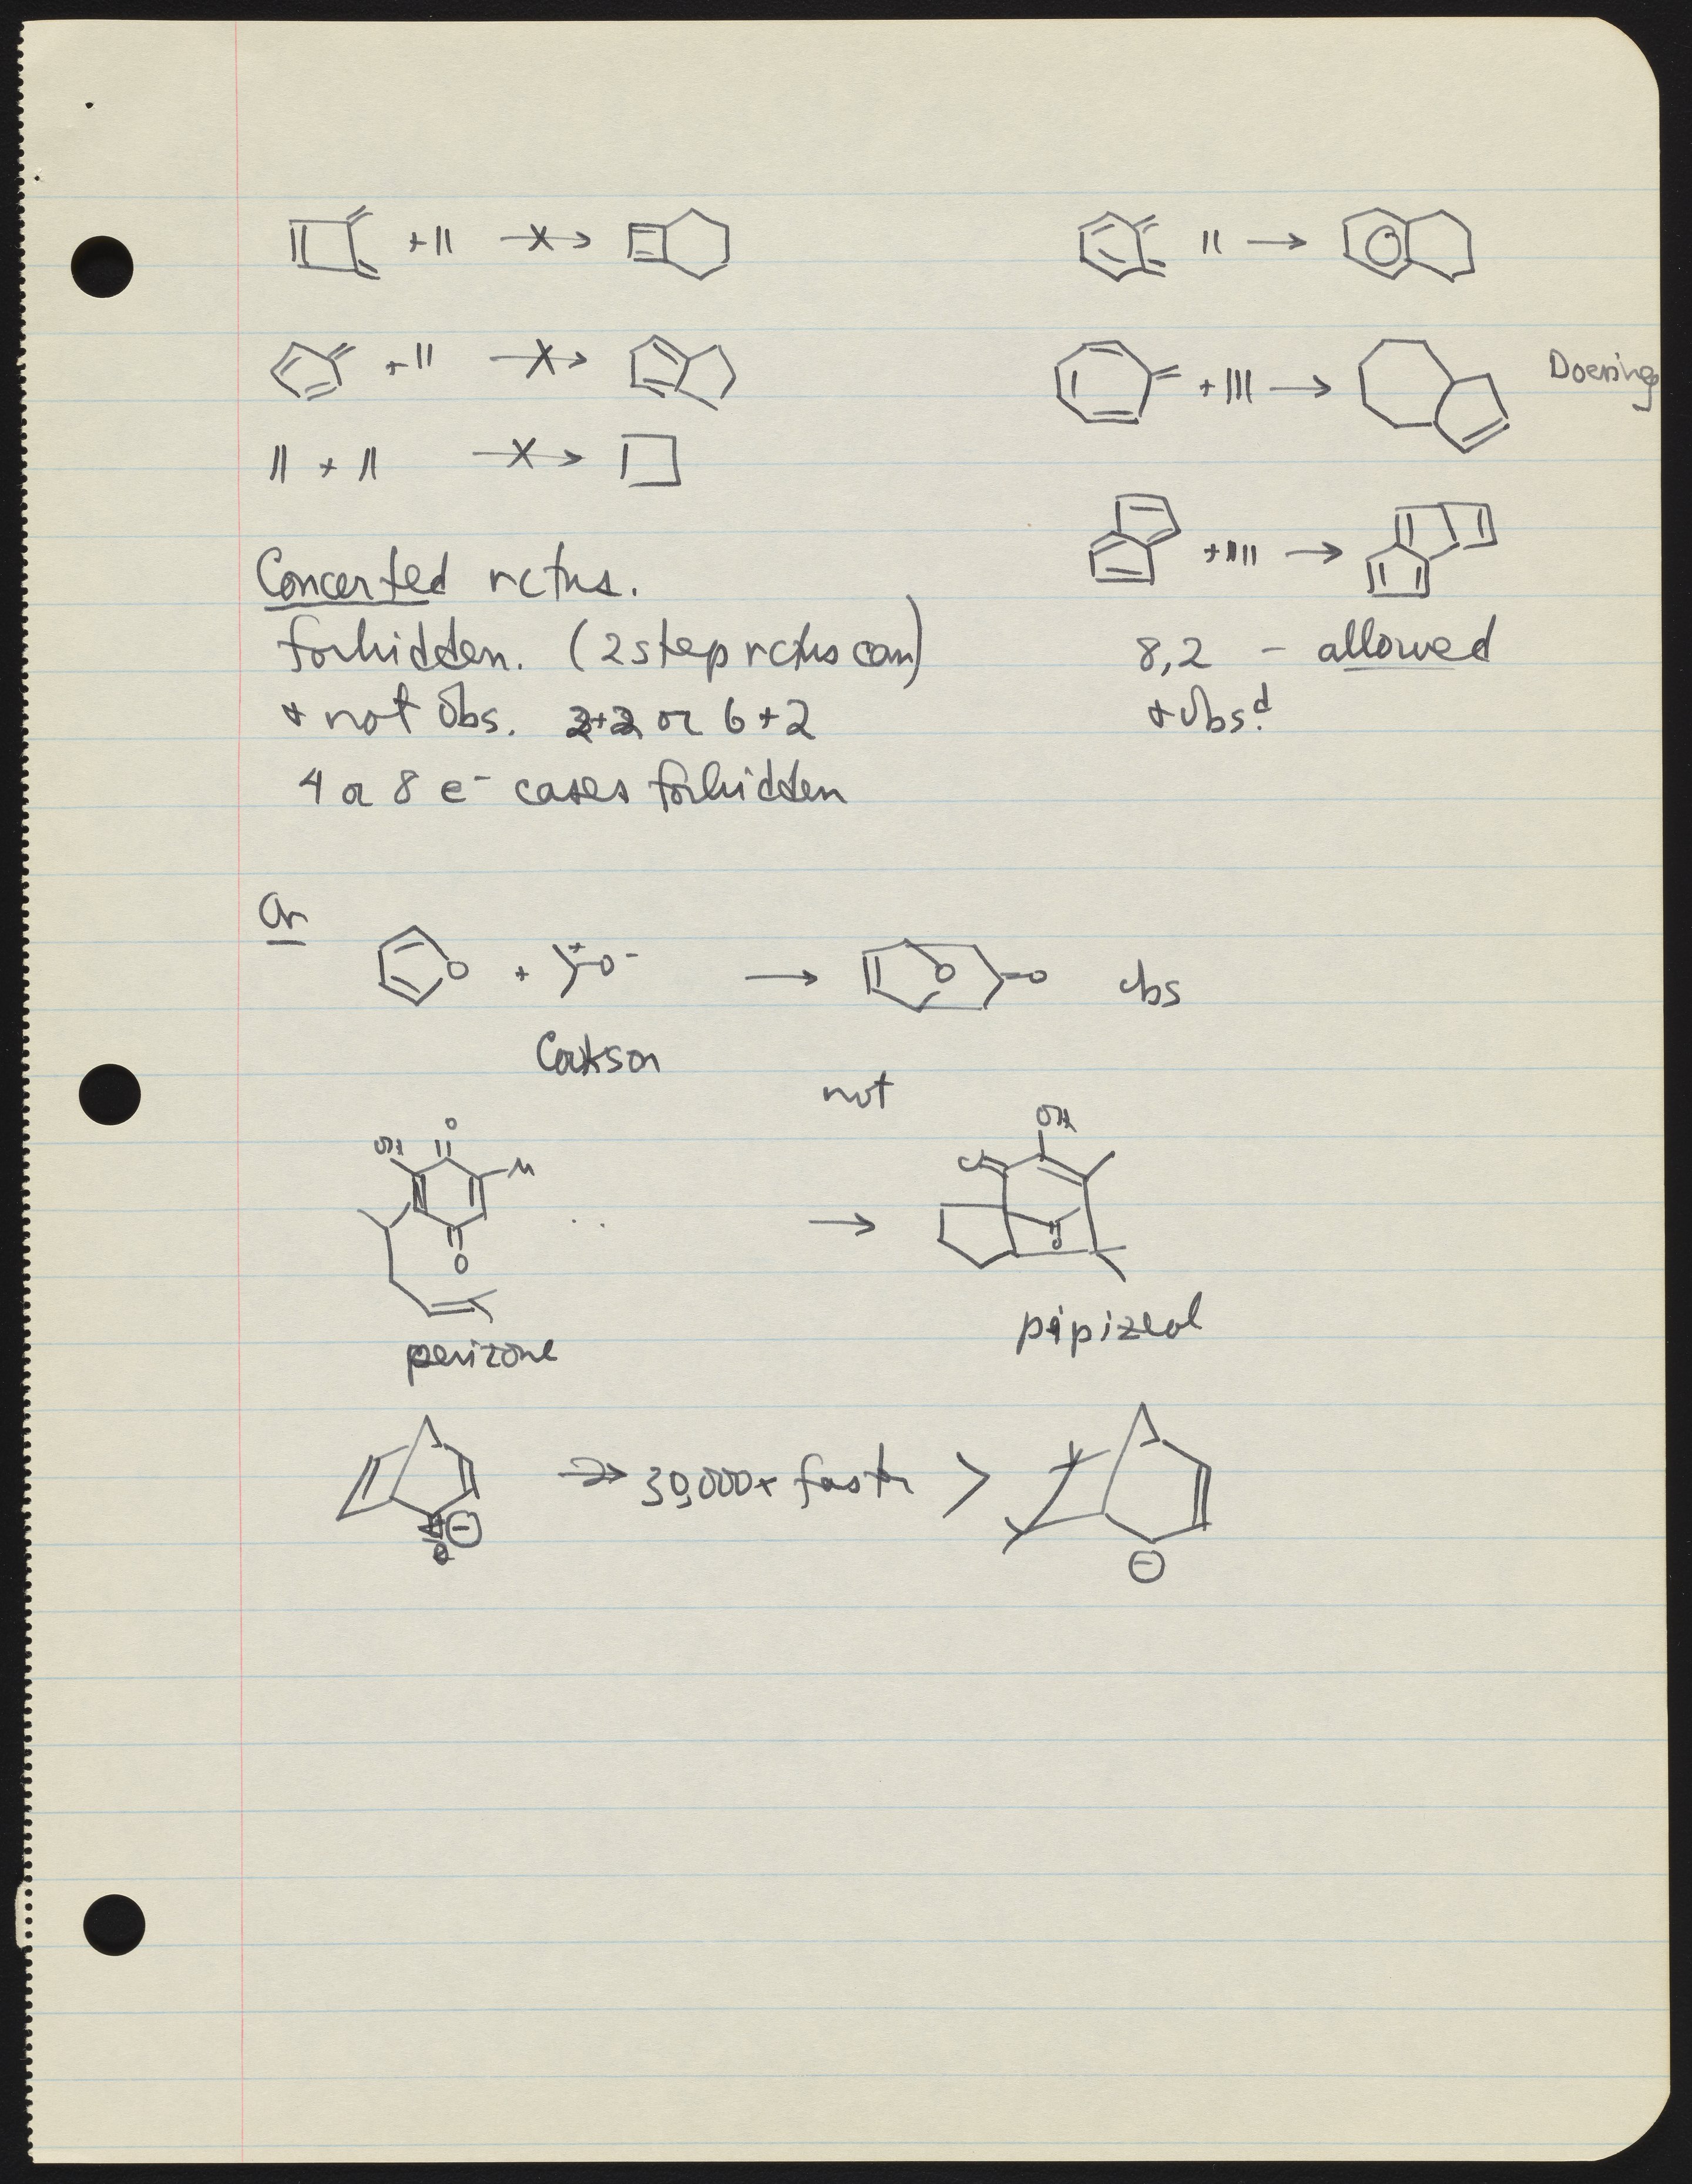 Doering
Concerted rctns.
forbidden. (2 step rctns can)
+ not obs. 2+2 or 6+2
4 or 8 e⁻ cases forbidden
8,2 - allowed
+ obsᵈ
Or
O
+
+
O-
O
O
obs
Cookson
not
OH
O
O
perizone
OH
O
O
pipizeol
30,000x faster >